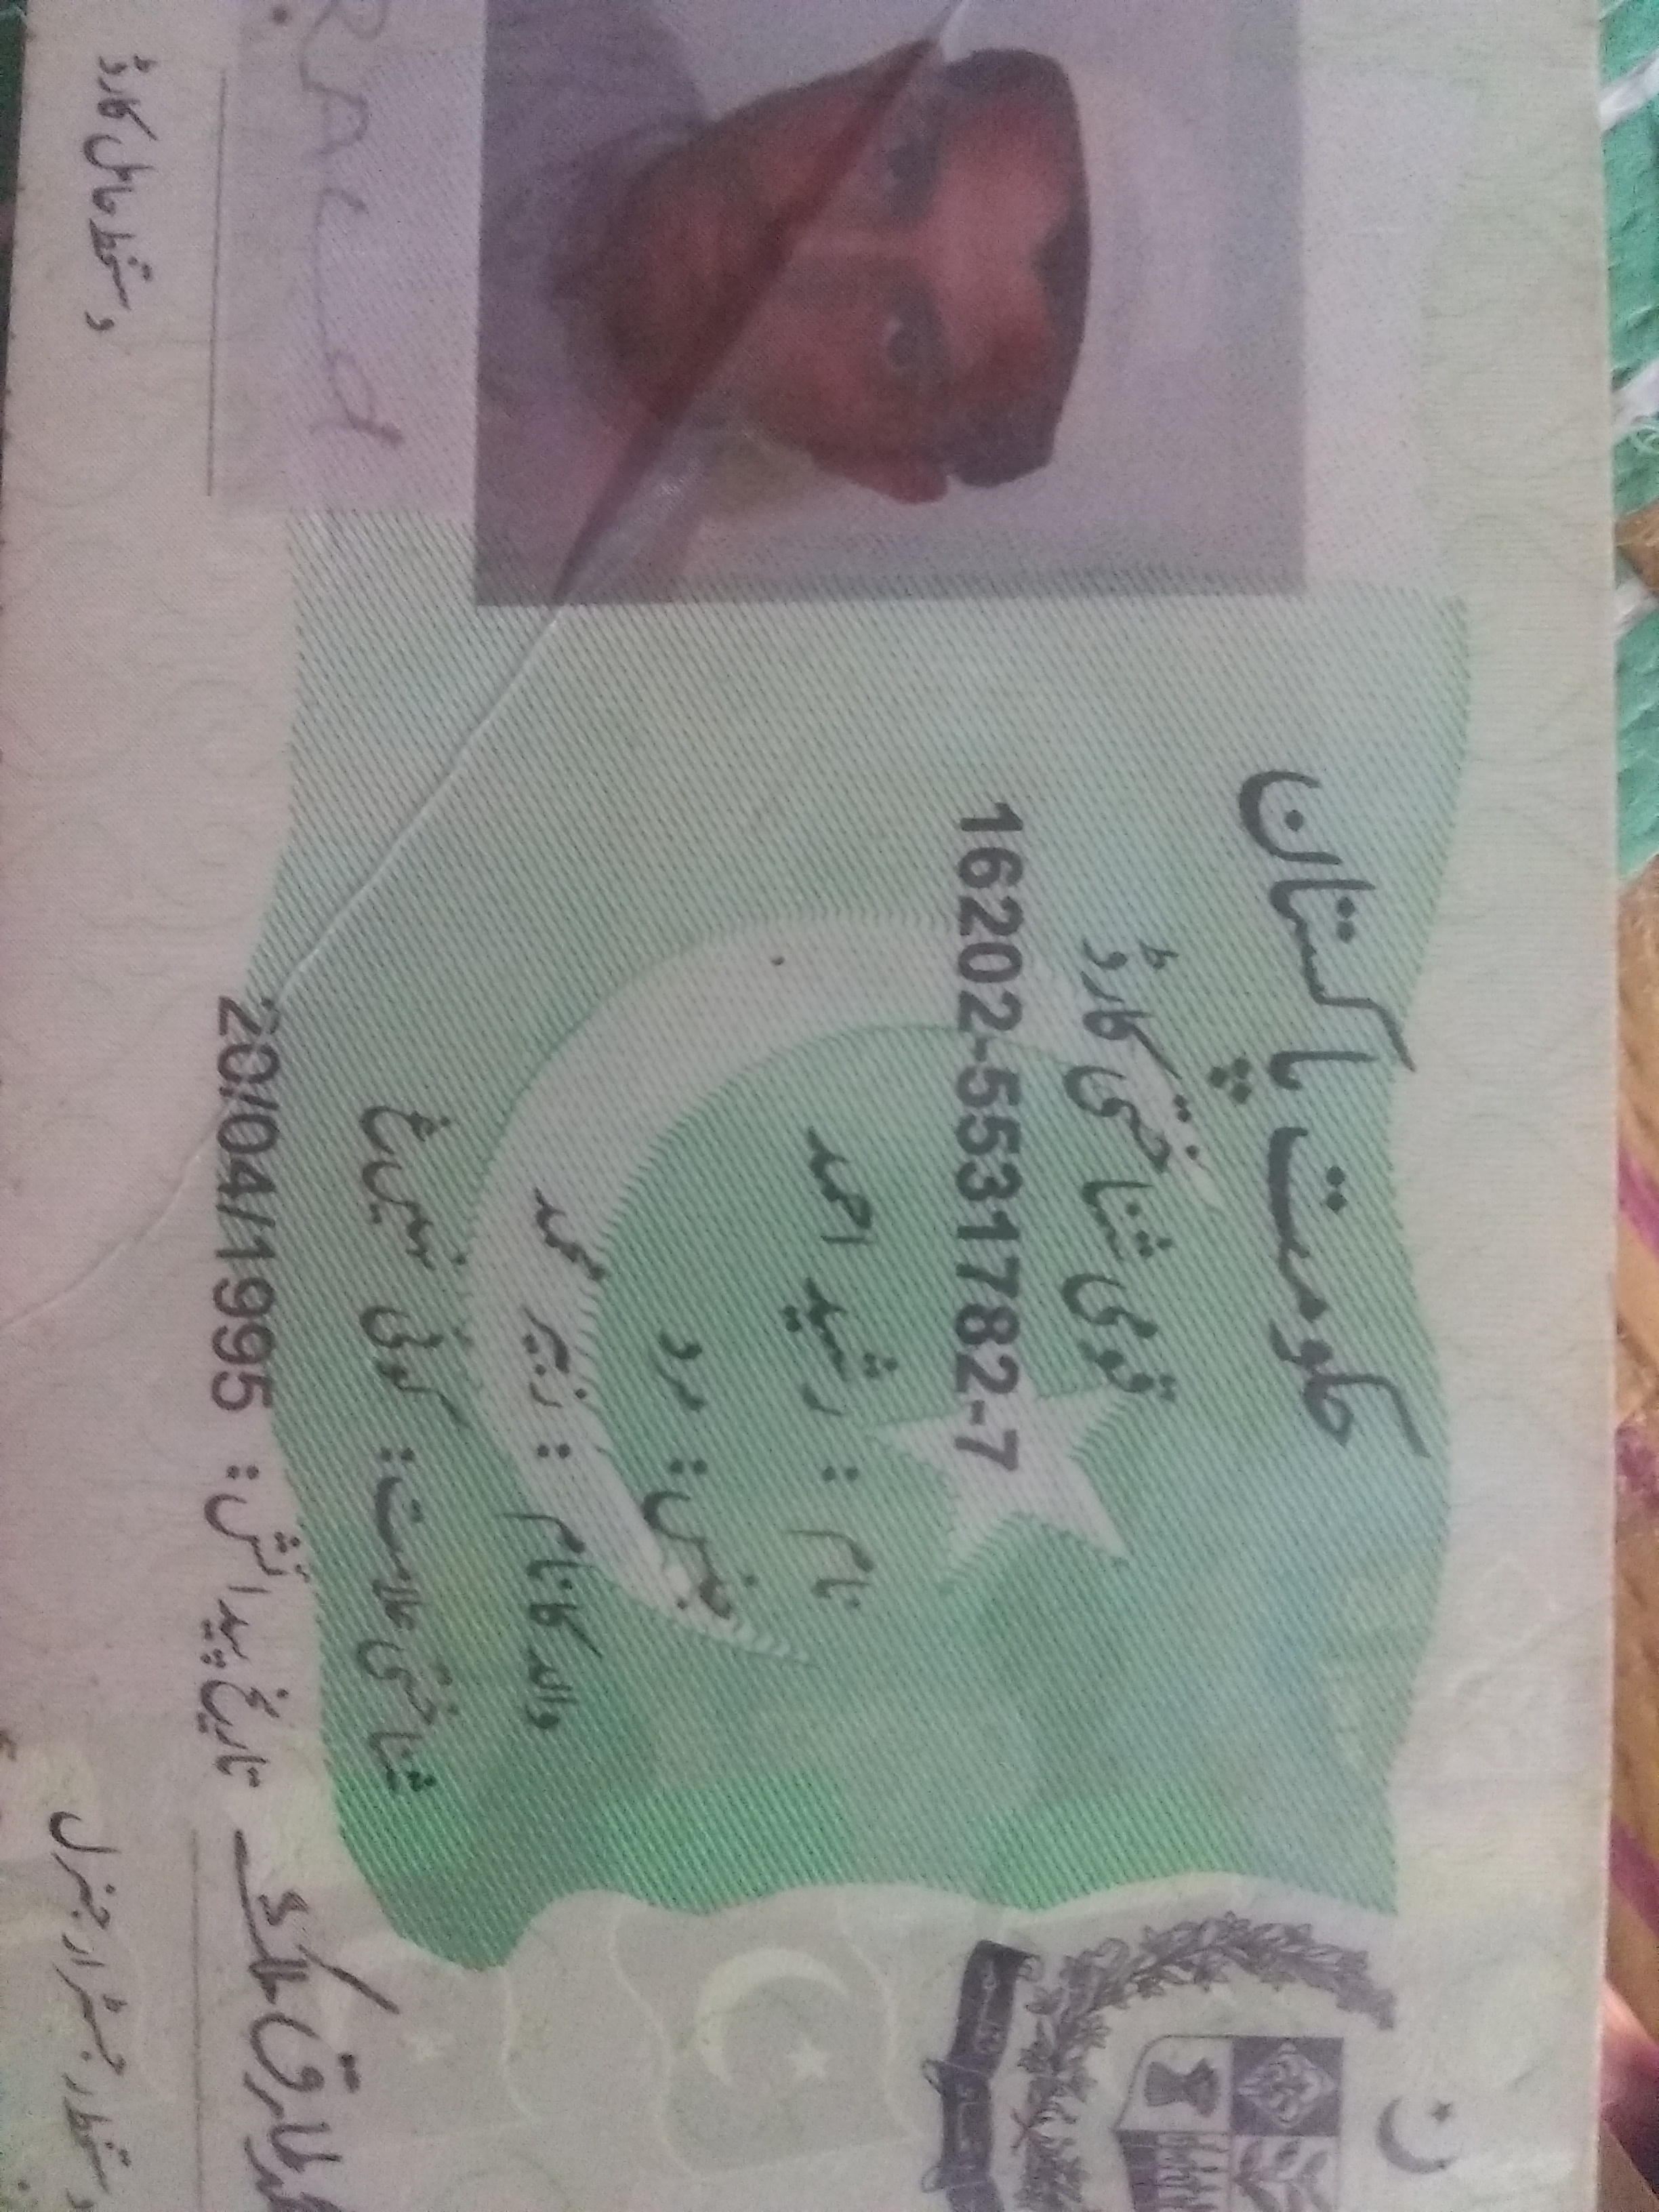 حکومت پاکستان
قومی شناختی کارڈ
16202-5531782-7
نام : رشید احمد
جنس: مرد
والد کا نام : زبیر محمد
شناختی علامت: کوئی نہیں
تاریخ پیدائش: 20/04/1995
طارق ملک
دستخط رجسٹرار جنرل
دستخط حامل کارڈ